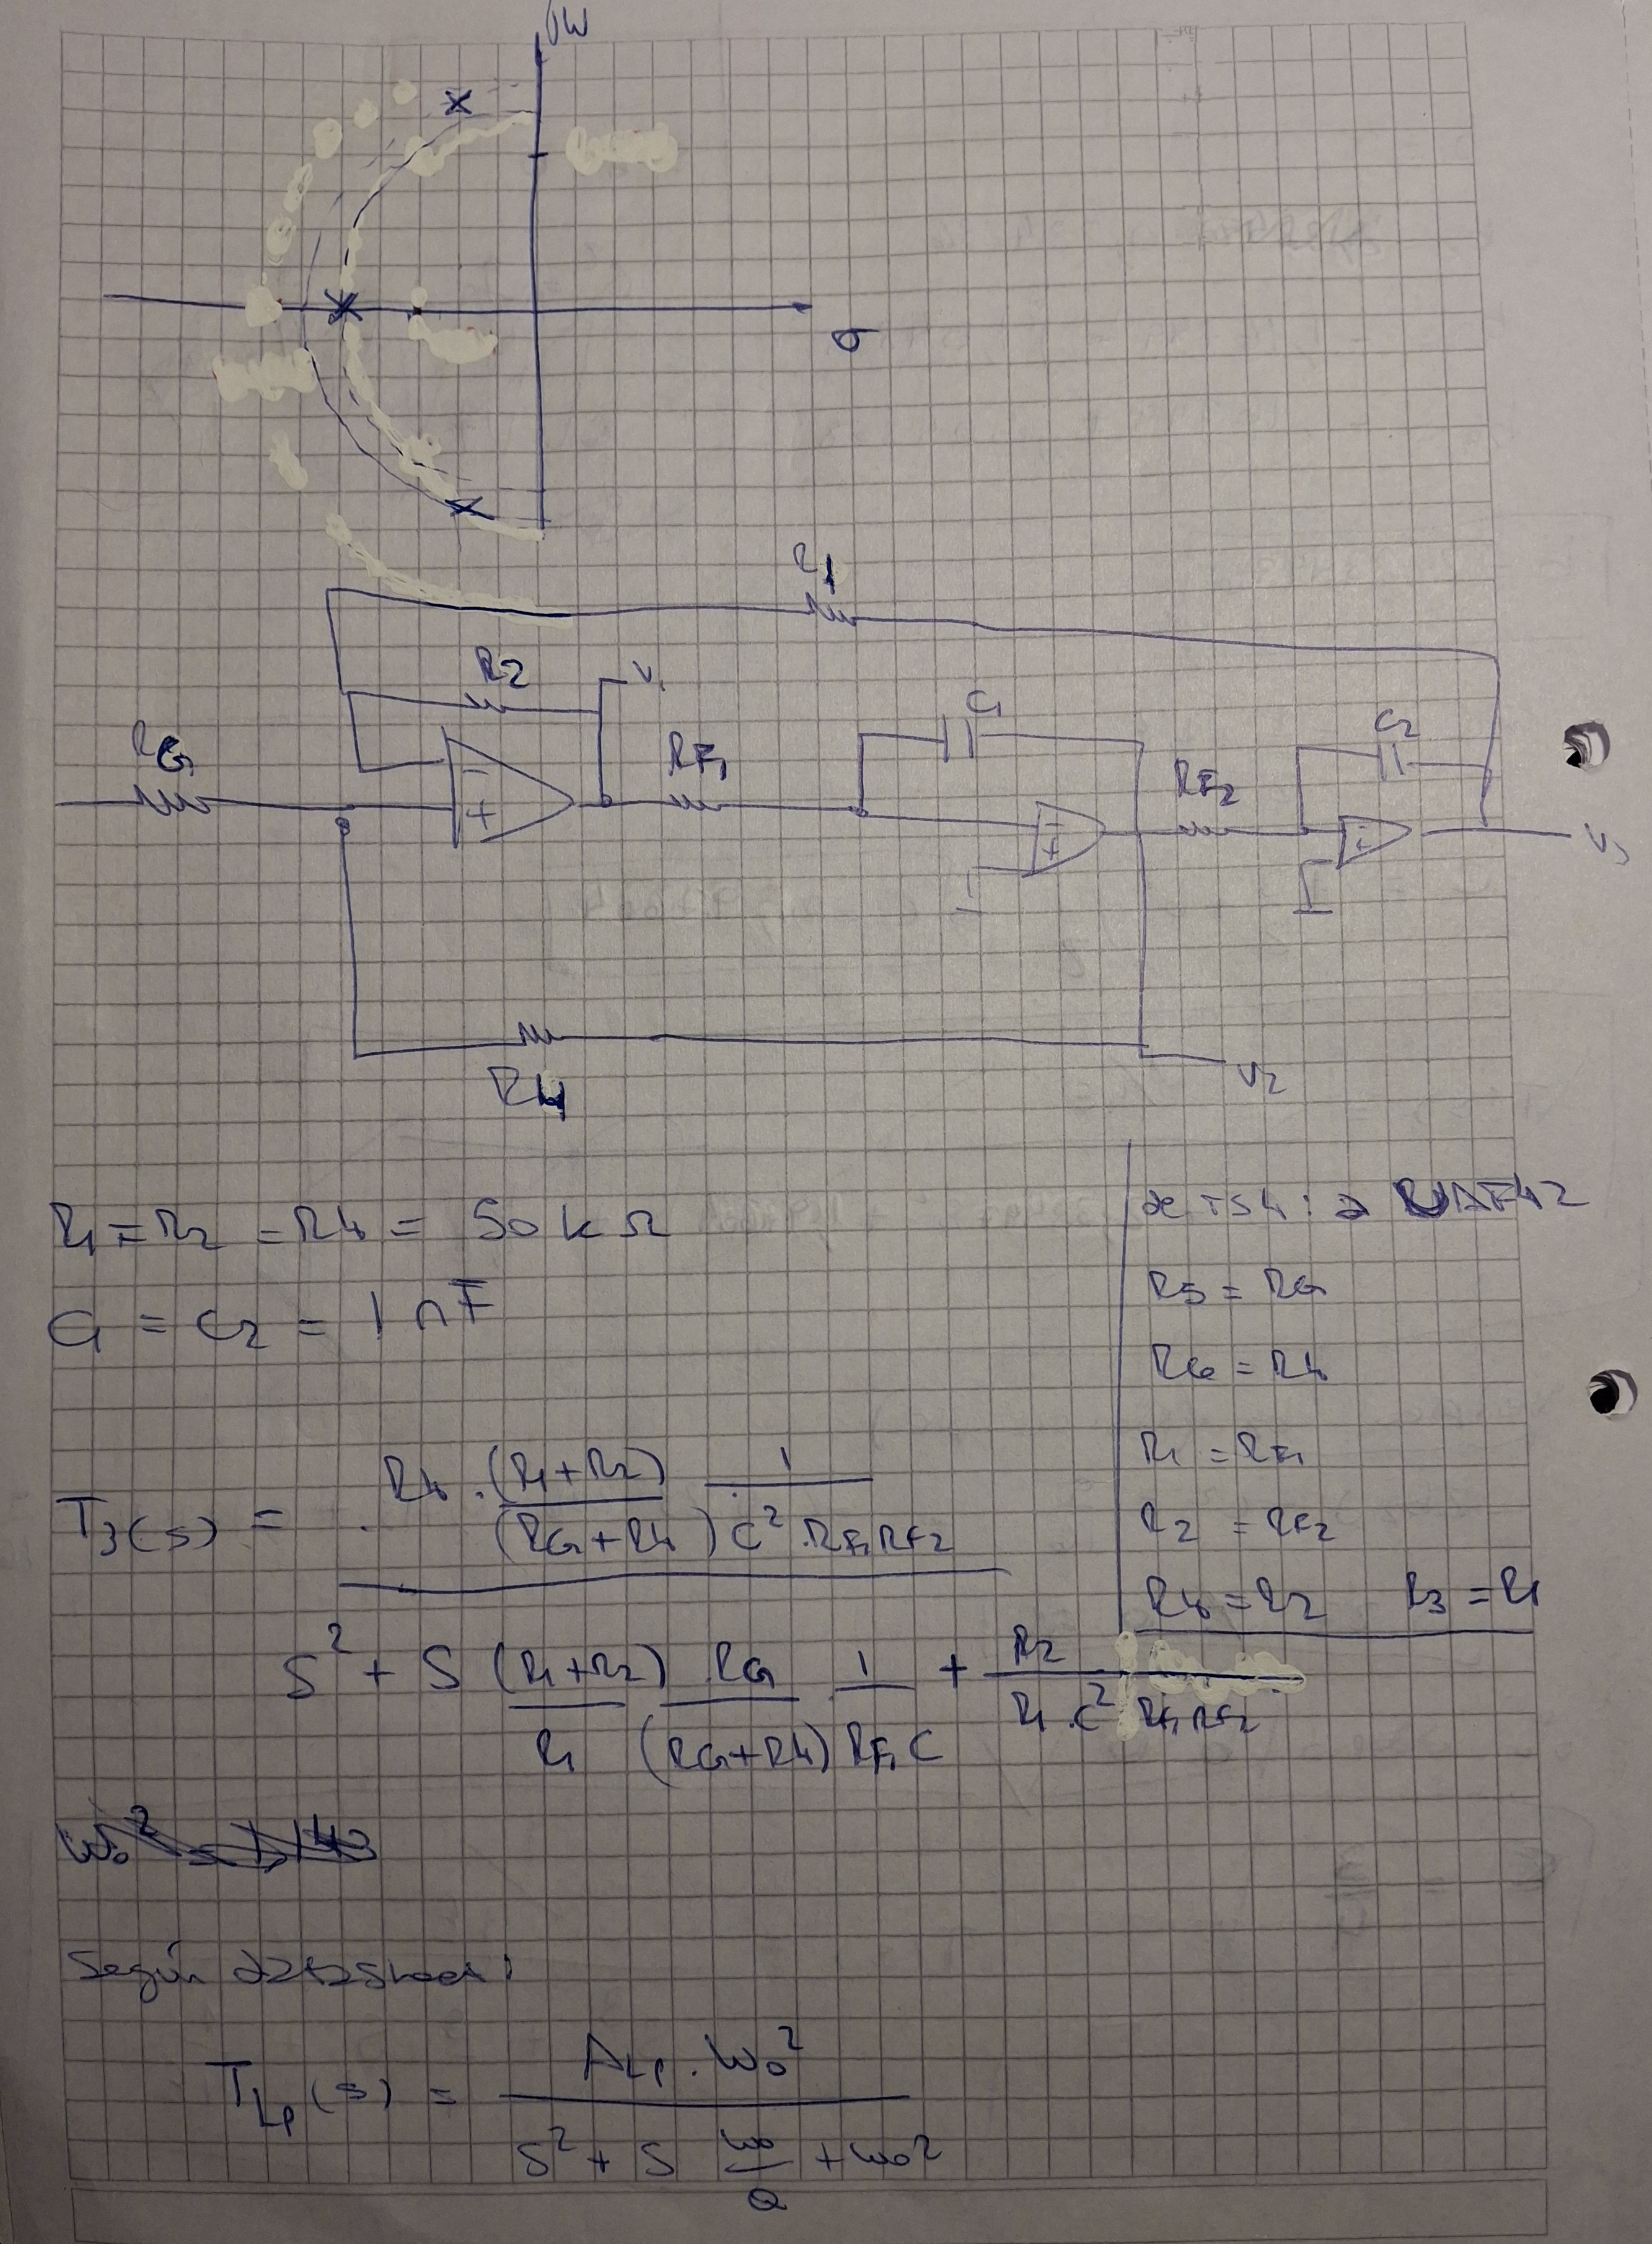 jω
σ
R1
R2
V1
RG
RF1
C1
RF2
C2
V3
R4
V2
R1 = R2 = R4 = 50 k Ω
C1 = C2 = 1 nF
de TS4: a UAF42
R5 = RG
R6 = R4
R1 = RF1
R2 = RF2
R4 = R2 R3 = R1
T3(s) = R4 . (R1+R2) 1
(RG+R4) C² . RF1 RF2
S² + S (R1+R2) RG 1 + R2
R1 (RG+R4) RF1 C R1 . C² RF1 RF2
ω0²
Según datasheet:
TLP(s) = ALP . ω0²
S² + S ω0 + ω0²
Q